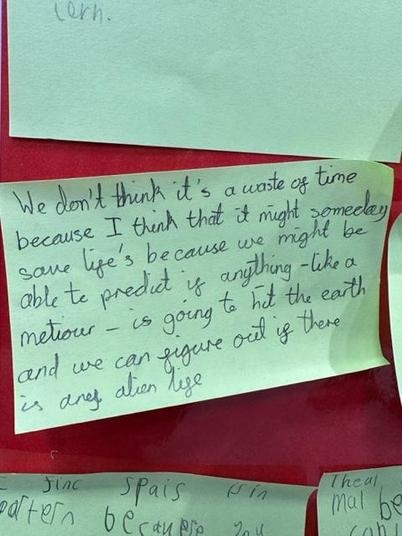 cern.
We don't think it's a waste of time
because I think that it might someday
save life's because we might be
able to predict if anything - like a
metiour - is going to hit the earth
and we can figure out if there
is any alien life
spais is in
because you
mal be